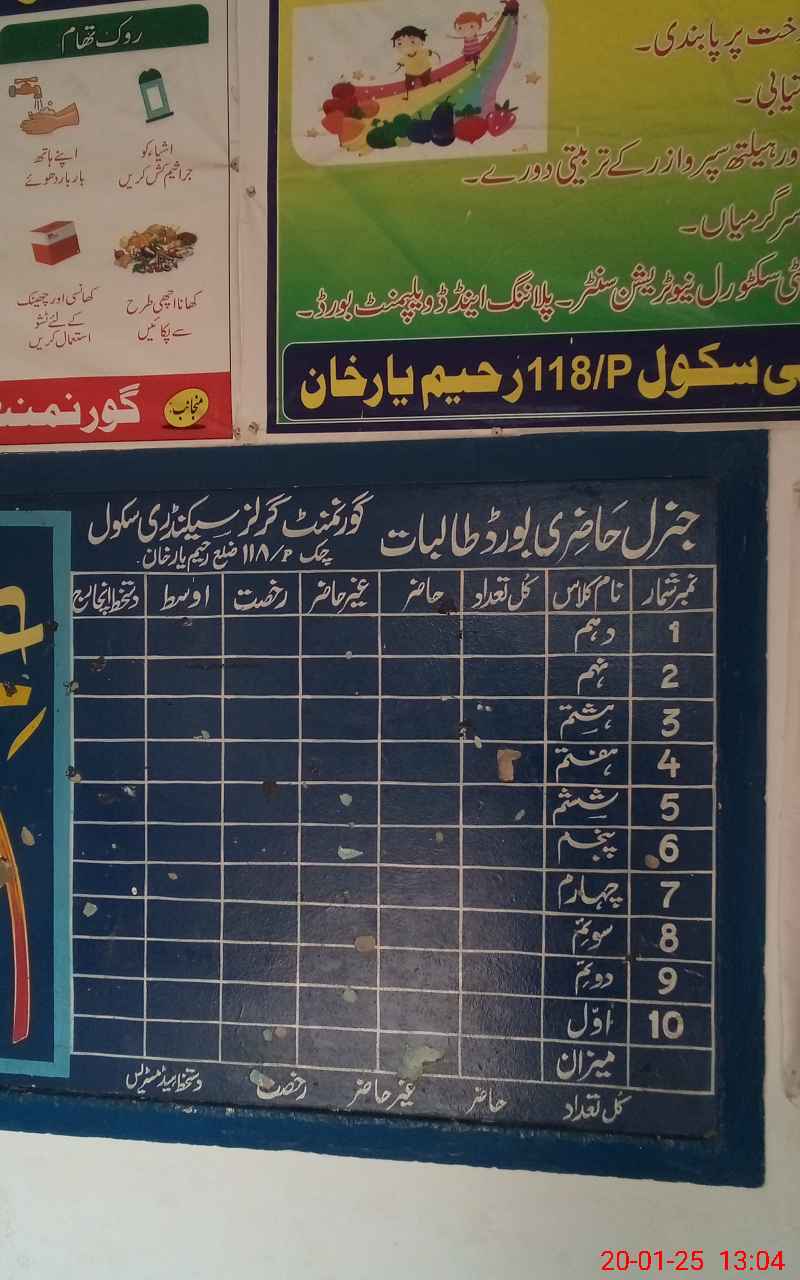 روک تھام
اپنے ہاتھ
بار بار دھوئے
اشیاء کو
جراثیم کش کریں
کھانسی اور چھینک
کے لئے ٹشو
استعمال کریں
کھانا اچھی طرح
سے پکائیں
منجانب:
گورنمنٹ
پر پابندی۔
ہیلتھ سپروازر کے تربیتی دورے۔
سرگرمیاں۔
سکٹورل نیوٹریشن سنٹر۔ پلاننگ اینڈ ڈویلپمنٹ بورڈ۔
سکول 118/P رحیم یار خان
جنرل حاضری بورڈ طالبات گورنمنٹ گرلز سیکنڈری سکول
چک 118/P ضلع رحیم یار خان
نمبر شمار نام کلاس کل تعداد حاضر غیر حاضر رخصت اوسط دستخط انچارج
1 دہم
2 نہم
3 ہشتم
4 ہفتم
5 ششم
6 پنجم
7 چہارم
8 سوئم
9 دوئم
10 اوّل
میزان
کل تعداد حاضر غیر حاضر رخصت دستخط ہیڈ مسٹریس
20-01-25 13:04